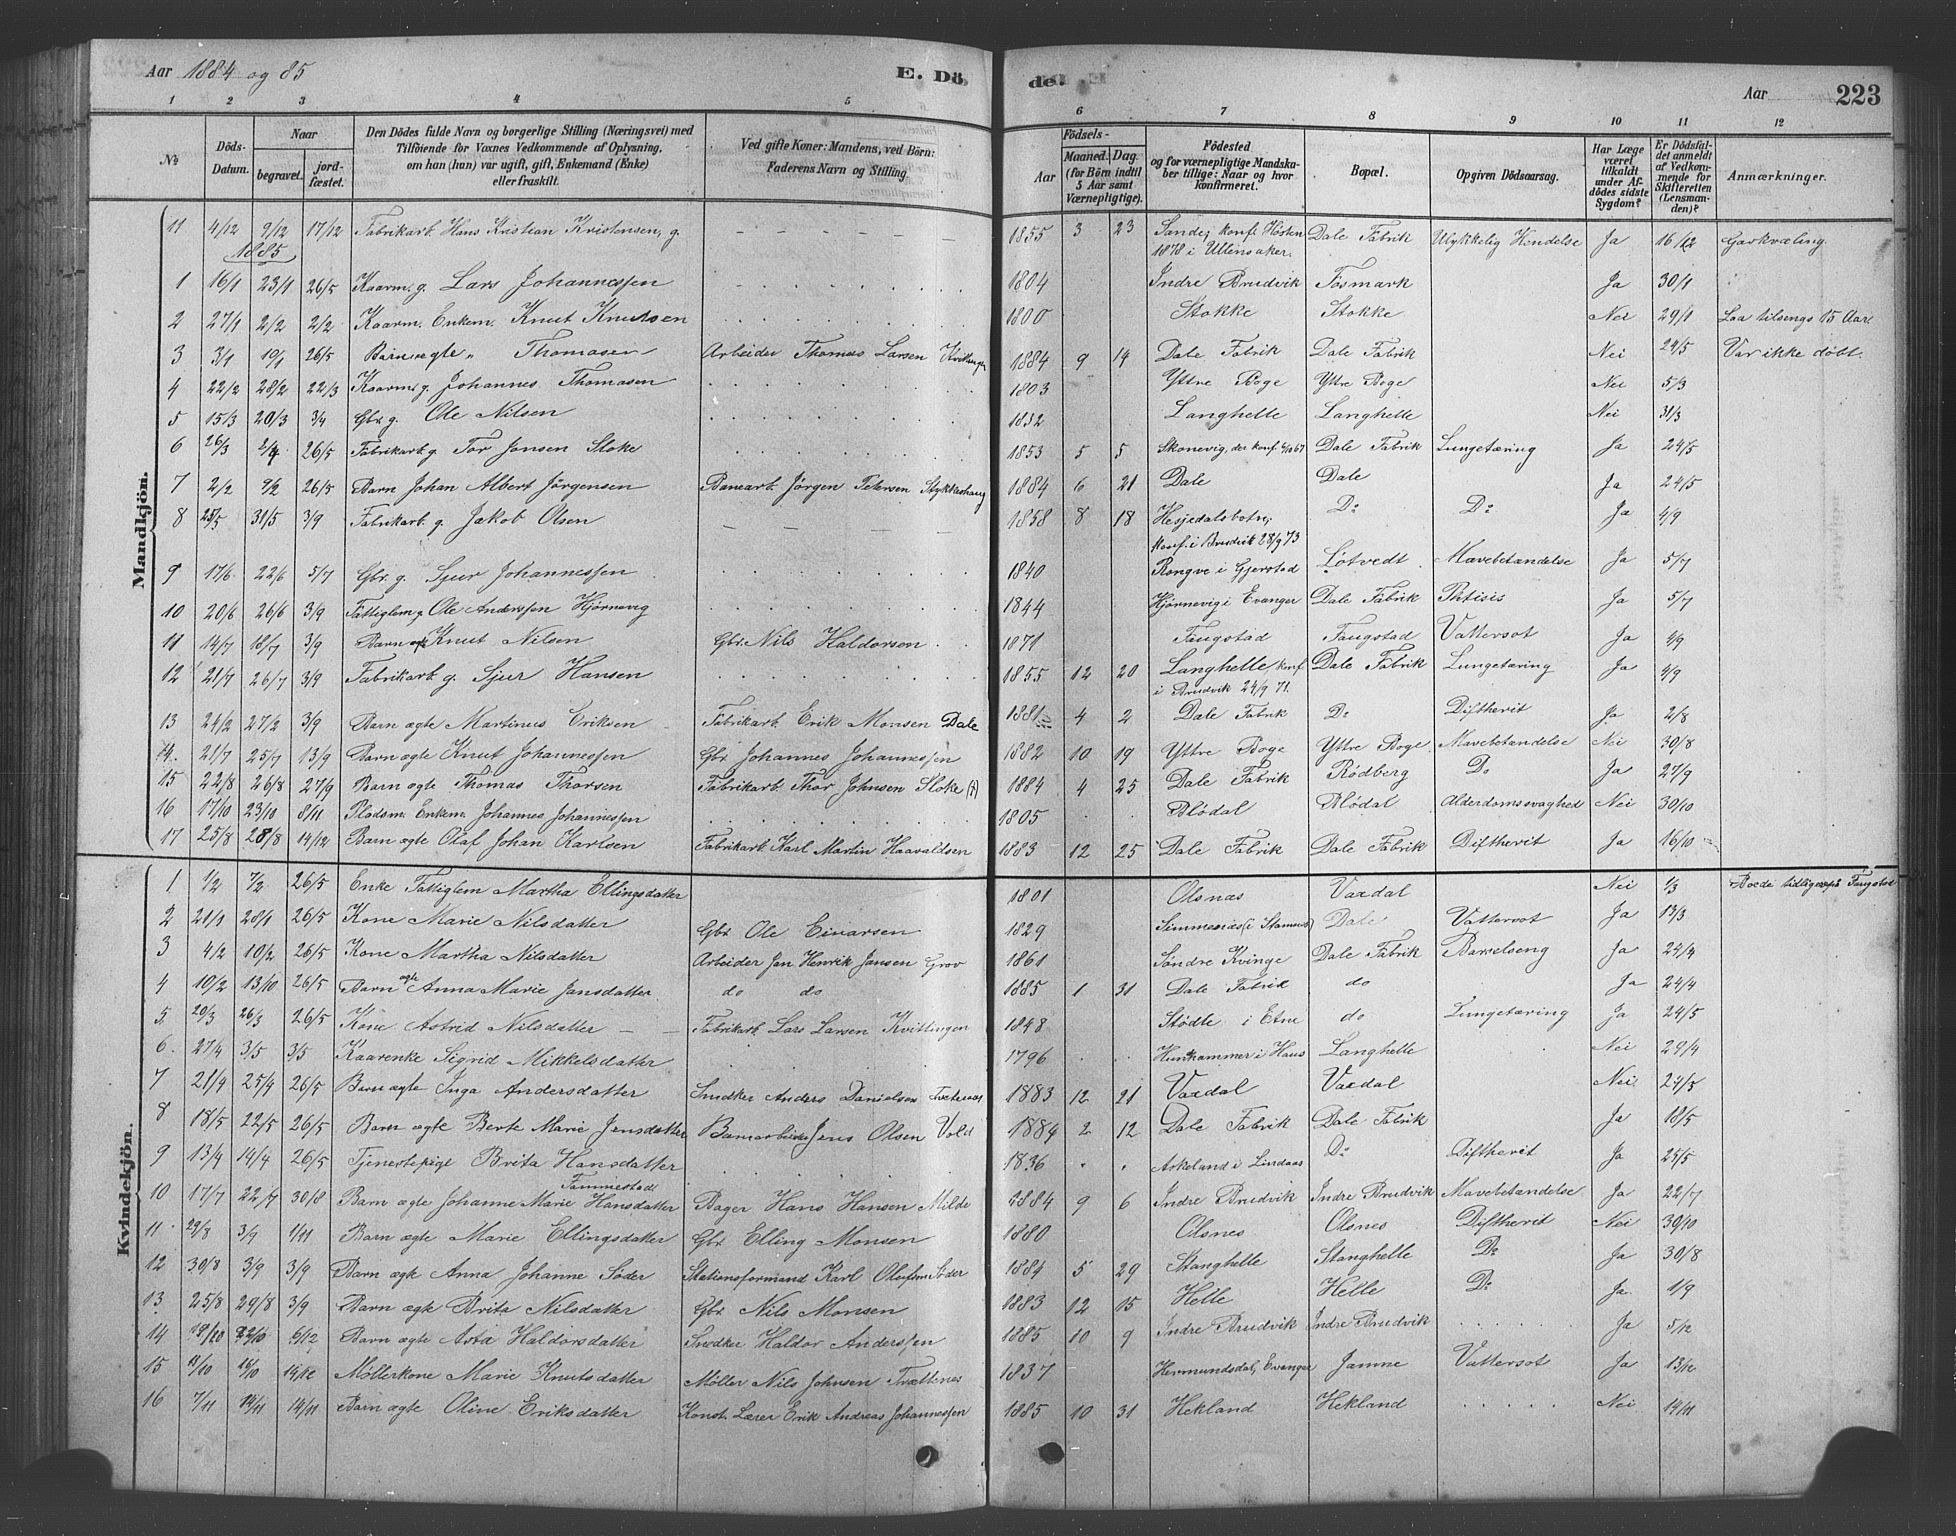 Aar 1884 og 85 E. Dö de. Aar 223
1 2 3 4 5 6 7 8 9 10 11 12
№ Döds-Datum. Naar begravet. jordfæstet. Den Dödes fulde Navn og borgerlige Stilling (Næringsvei) med Tilföiende for Voxnes Vedkommende af Oplysning, om han (hun) var ugift, gift, Enkemand (Enke) eller fraskilt. Ved gifte Koner: Mandens, ved Börn: Faderens Navn og Stilling. Födsels- Aar Maaned. Dag. (for Börn indtil 5 Aar samt Værnepligtige). Födested og for værnepligtige Mandskaber tillige: Naar og hvor konfirmeret. Bopæl. Opgiven Dödsaarsag. Har Læge været tilkaldt under Afdödes sidste Sygdom? Er Dödsfaldet anmeldt af Vedkommende for Skifteretten (Lensmanden)? Anmærkninger.
Mandkjön.
11 4/12 9/12 17/12 Fabrikarb. Hans Kristian Kristensen, g. — — — 1855 3 23 Sande; konf. Høsten 1878 i Ullensaker. Dale Fabrik Ulykkelig Hendelse Ja 16/12
1885
1 16/1 23/1 26/5 Kaarm. g. Lars Johannessen 1804 Indre Brudvik Fosmark Ja 30/1
2 27/1 2/2 2/2 Kaarm. Enkem. Knut Knutsen 1800 Stokke Stokke Nei 29/1 Laa tilsengs 15 Aar
3 3/1 10/1 26/5 Barn ægte „ Thomasen Arbeider Thomas Larsen 1884 9 14 Dale Fabrik Dale Fabrik Nei 24/5 Var ikke døbt.
4 22/2 28/2 22/3 Kaarm. g. Johannes Thomasen 1803 Yttre Boge Yttre Boge Nei 5/3
5 15/3 20/3 3/4 Gbr. g. Ole Nilsen 1832 Langhelle Langhelle Nei 31/3
6 26/3 2/4 26/5 Fabrikarb. g. Tor Jonsen Stoke 1853 5 5 Skonevig, der konf. Dale Fabrik Lungetæring Ja 24/5
7 2/2 9/2 26/5 Barn Johan Albert Jørgensen Banearb. Jørgen Petersen 1884 6 21 Dale Dale Ja 24/5
8 25/5 31/5 3/9 Fabrikarb. g. Jakob Olsen — — — 1858 8 18 Hesjedalsbotn; konf. i Brudvik 28/9 73 Do Do Ja 4/9
9 17/6 22/6 5/7 Gbr. g. Sjur Johannessen 1840 Rongve i Gjerstad Løtvedt Mavebetændelse Ja 5/7
10 20/6 26/6 3/9 Fattiglem g. Ole Anderssen Hjørnevig 1844 Hjørnevig i Evanger Dale Fabrik Phtisis Ja 5/7
11 14/7 18/7 3/9 Barn ægte Knut Nilsen Gbr. Nils Haldorsen 1871 Faugstad Faugstad Vattersot Ja 4/9
12 21/7 26/7 3/9 Fabrikarb. g. Sjur Hansen 1855 12 20 Langhelle, konf. i Brudvik 24/9 71. Dale Fabrik Lungetæring Ja 4/9
13 24/2 27/2 3/9 Barn ægte Martinus Eriksen Fabrikarb. Erik Monsen Dale 1881 4 2 Dale Fabrik Do Diftherit Ja 2/8
14. 21/7 25/7 13/9 Barn ægte Knut Johannessen Gbr. Johannes Johannessen 1882 10 19 Yttre Boge Yttre Boge. Mavebetændelse Nei 30/8
15 22/8 26/8 27/9 Barn ægte Thomas Thorsen Fabrikarb. Thor Johnsen Stoke (†) 1884 4 25 Dale Fabrik Rödberg Do Ja 27/9
16 17/10 23/10 8/11 Pladsm. Enkem. Johannes Johannessen 1805 Blödal Blödal Alderdomssvaghed Nei 30/10
17 25/8 28/8 14/12 Barn ægte Olaf Johan Karlsen Fabrikarb. Karl Martin Haavaldsen 1883 12 25 Dale Fabrik Dale Fabrik Diftherit Ja 16/10
Kvindekjön.
1 1/2 7/2 26/5 Enke Fattiglem Martha Ellingsdatter 1801 Olsnæs Vaxdal Nei 1/3 Boede tidligere på Faugstad
2 21/1 28/1 26/5 Kone Marie Nilsdatter Gbr. Ole Einarsen 1829 Simmenæs i Stamnæs Dale Vattersot Ja 13/3
3 4/2 10/2 26/5 Kone Martha Nilsdatter Arbeider Jan Henrik Jansen Grov 1861 Söndre Kvinge Dale Fabrik Barselseng Ja 24/4
4 10/2 13/10 26/5 Barn ægte Anna Marie Jansdatter do do 1885 1 31 Dale Fabrik do Ja 24/4
5. 20/3 26/3 26/5 Kone Astrid Nilsdatter — — Fabrikarb. Lars Larsen Kvittingen 1848 Stödle i Etne do Lungetæring Ja 24/5
6. 27/4 3/5 3/5 Kaarenke Sigrid Mikkelsdatter 1796 i Haus Langhelle Nei 29/4
7 21/9 25/4 26/5 Barn ægte Inga Andersdatter Snedker Anders Danielsen 1883 12 21 Vaxdal Vaxdal Nei 24/5
8 18/5 22/5 26/5 Barn ægte Berte Marie Jensdatter Banearbeider Jens Olsen Vold 1884 2 12 Dale Fabrik Dale Fabrik Ja 18/5
9 13/4 14/4 26/5 Tjenestepige Brita Hansdatter 1836 Askeland i Lindaas Do Diftherit Ja 25/5
10 17/7 22/7 30/8 Barn ægte Johanne Marie Hansdatter Bager Hans Hansen Milde 1884 9 6 Indre Brudvik Indre Brudvik Mavebetændelse. Ja 22/7
11. 29/8 3/9 1/11 Barn ægte Marie Ellingsdatter Gbr. Elling Monsen 1880 Olsnes Olsnes Diftherit Nei 30/10
12 30/8 3/9 3/9 Barn ægte Anna Johanne Söder Stationsformand Karl Olofson Söder 1884 5 29 Stanghelle Stanghelle Do Ja 30/8
13. 25/8 29/8 3/9 Barn ægte Brita Nilsdatter Gbr. Nils Monsen 1883 12 15 Helle Helle Do Ja. 1/9
14 19/10 22/10 6/12 Barn ægte Haldorsdatter Snedker Haldor Anderssen 1885 10 9 Indre Brudvik Indre Brudvik Ja 5/12
15 11/10 16/10 14/12 Møllerkone Marie Knutsdatter Møller Nils Johnsen 1837 Evanger Jamne Vattersot Ja 13/12
16 7/11 14/11 14/11 Barn ægte Oline Eriksdatter Konst. Lærer Erik Andreas Johannessen 1885 10 31 Hekland Hekland Nei 14/11